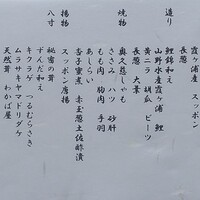 霞ヶ浦産 スッポン
長葱
造り
鯉錦和え
山野水産霞ヶ浦 鯉
黄ニラ 胡瓜 ビーツ
長葱 大葉
焼物
奥久慈しゃも
ささみ ハツ 砂肝
もも肉 胸肉 手羽
あしらい
杏子蜜煮 赤玉葱土佐酢漬
揚物
スッポン唐揚
八寸
秘密の茸
ずんだ和え
キクラゲ つるむらさき
ムラサキヤマドリダケ
天然茸 わかば屋